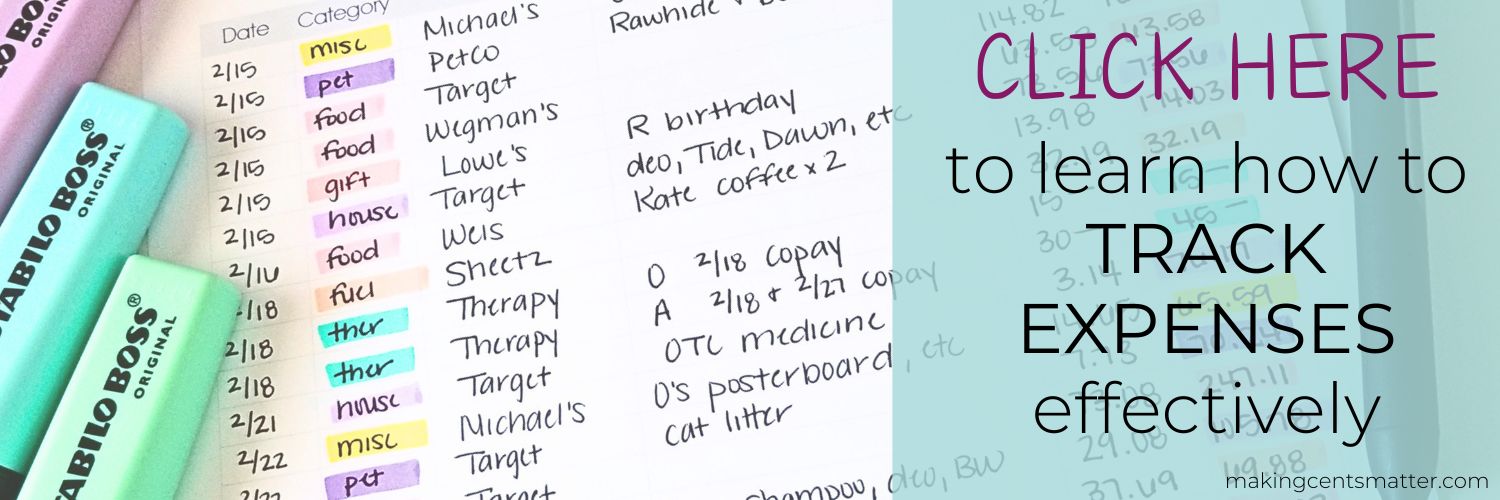 Date Category
2/15 misc Michael's
2/15 pet Petco Rawhide
2/15 food Target
2/15 food Wegman's
2/15 gift Lowe's R birthday
2/15 house Target deo, Tide, Dawn, etc
2/16 food Weis Kate coffee x 2
/18 fuel Sheetz
2/18 ther Therapy O 2/18 copay
2/18 ther Therapy A 2/18 & 2/27 copay
2/21 house Target OTC medicine, etc
2/22 misc Michael's O's posterboard
pet Target cat litter
Target shampoo, deo, BW
STABILO BOSS®
ORIGINAL
STABILO BOSS®
ORIGINAL
CLICK HERE
to learn how to
TRACK
EXPENSES
effectively
makingcentsmatter.com
114.82
63.58 43.58
13.98
32.19
45 –
3.14
65.59
7.73
247.11
29.08
37.69 69.88